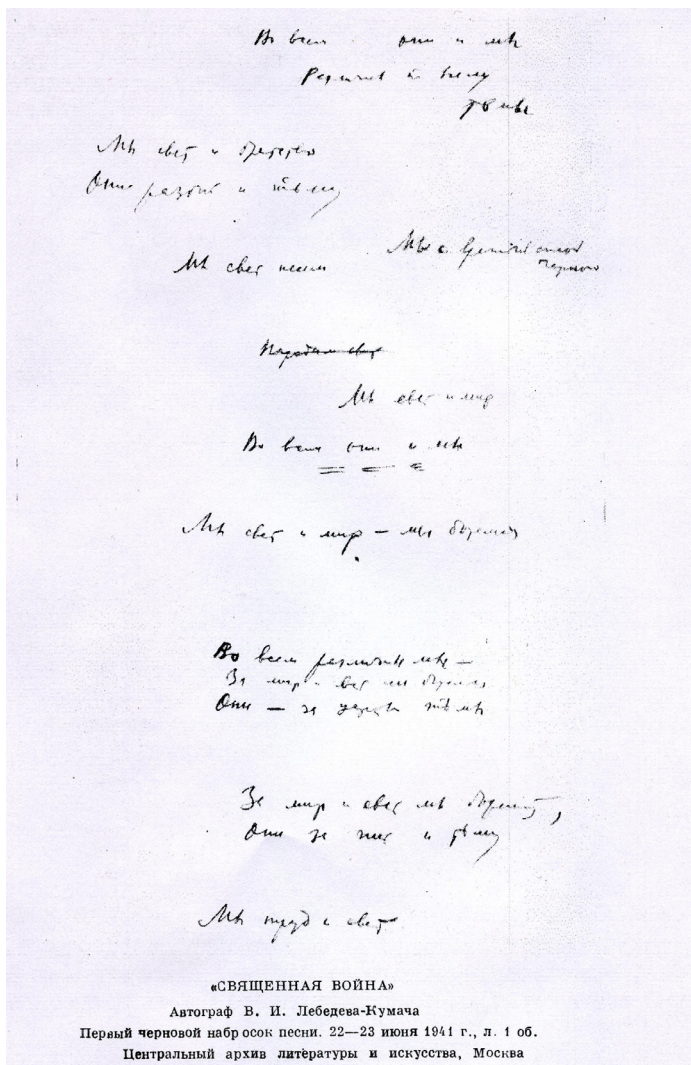 Во всем они и мы
Различны
Мы свет и
Они и тьму
Мы с
Мы свет несем
Мы свет и мир
Во всем они и мы
Мы свет и мир — мы боремся
Во всем различны мы —
За мир и свет мы боремся
Они — за царство тьмы
За мир и свет мы боремся,
Они за и тьму
Мы труд и свет
«СВЯЩЕННАЯ ВОЙНА»
Автограф В. И. Лебедева-Кумача
Первый черновой набросок песни. 22—23 июня 1941 г., л. 1 об.
Центральный архив литературы и искусства, Москва